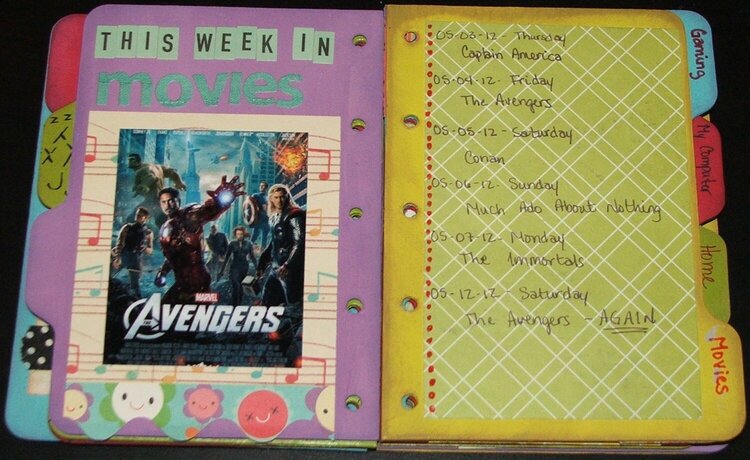 THIS WEEK IN
movies
MARVEL
THE AVENGERS
05-03-12- Thursday
Captain America
05-04-12- Friday
The Avengers
05-05-12-Saturday
Conan
05-06-12- Sunday
Much Ado About Nothing
05-07-12- Monday
The Immortals
05-12-12- Saturday
The Avengers - AGAIN
Gaming
My Computer
Home
Movies